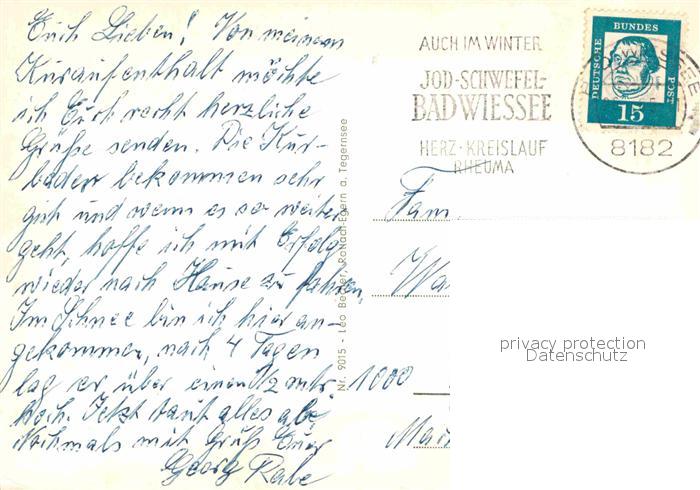 Euch Lieben! Von meinem
Kuraufenthalt möchte
ich Euch recht herzliche
Grüße senden. Die Kur-
bäder bekommen sehr
gut und wenn es so weiter
geht, hoffe ich mit Erfolg
wieder nach Hause zu fahren.
Im Schnee bin ich hier an-
gekommen, nach 4 Tagen
lag er über einen 1/2 mtr.
hoch. Jetzt taut alles ab.
Nochmals mit Gruß Euer
Georg Rabe
Nr. 9015 - Leo Becker, Rottach-Egern a. Tegernsee
AUCH IM WINTER
JOD-SCHWEFEL-
BAD WIESSEE
HERZ·KREISLAUF
RHEUMA
DEUTSCHE
BUNDES
POST
15
8182
Fam.
1000
privacy protection
Datenschutz